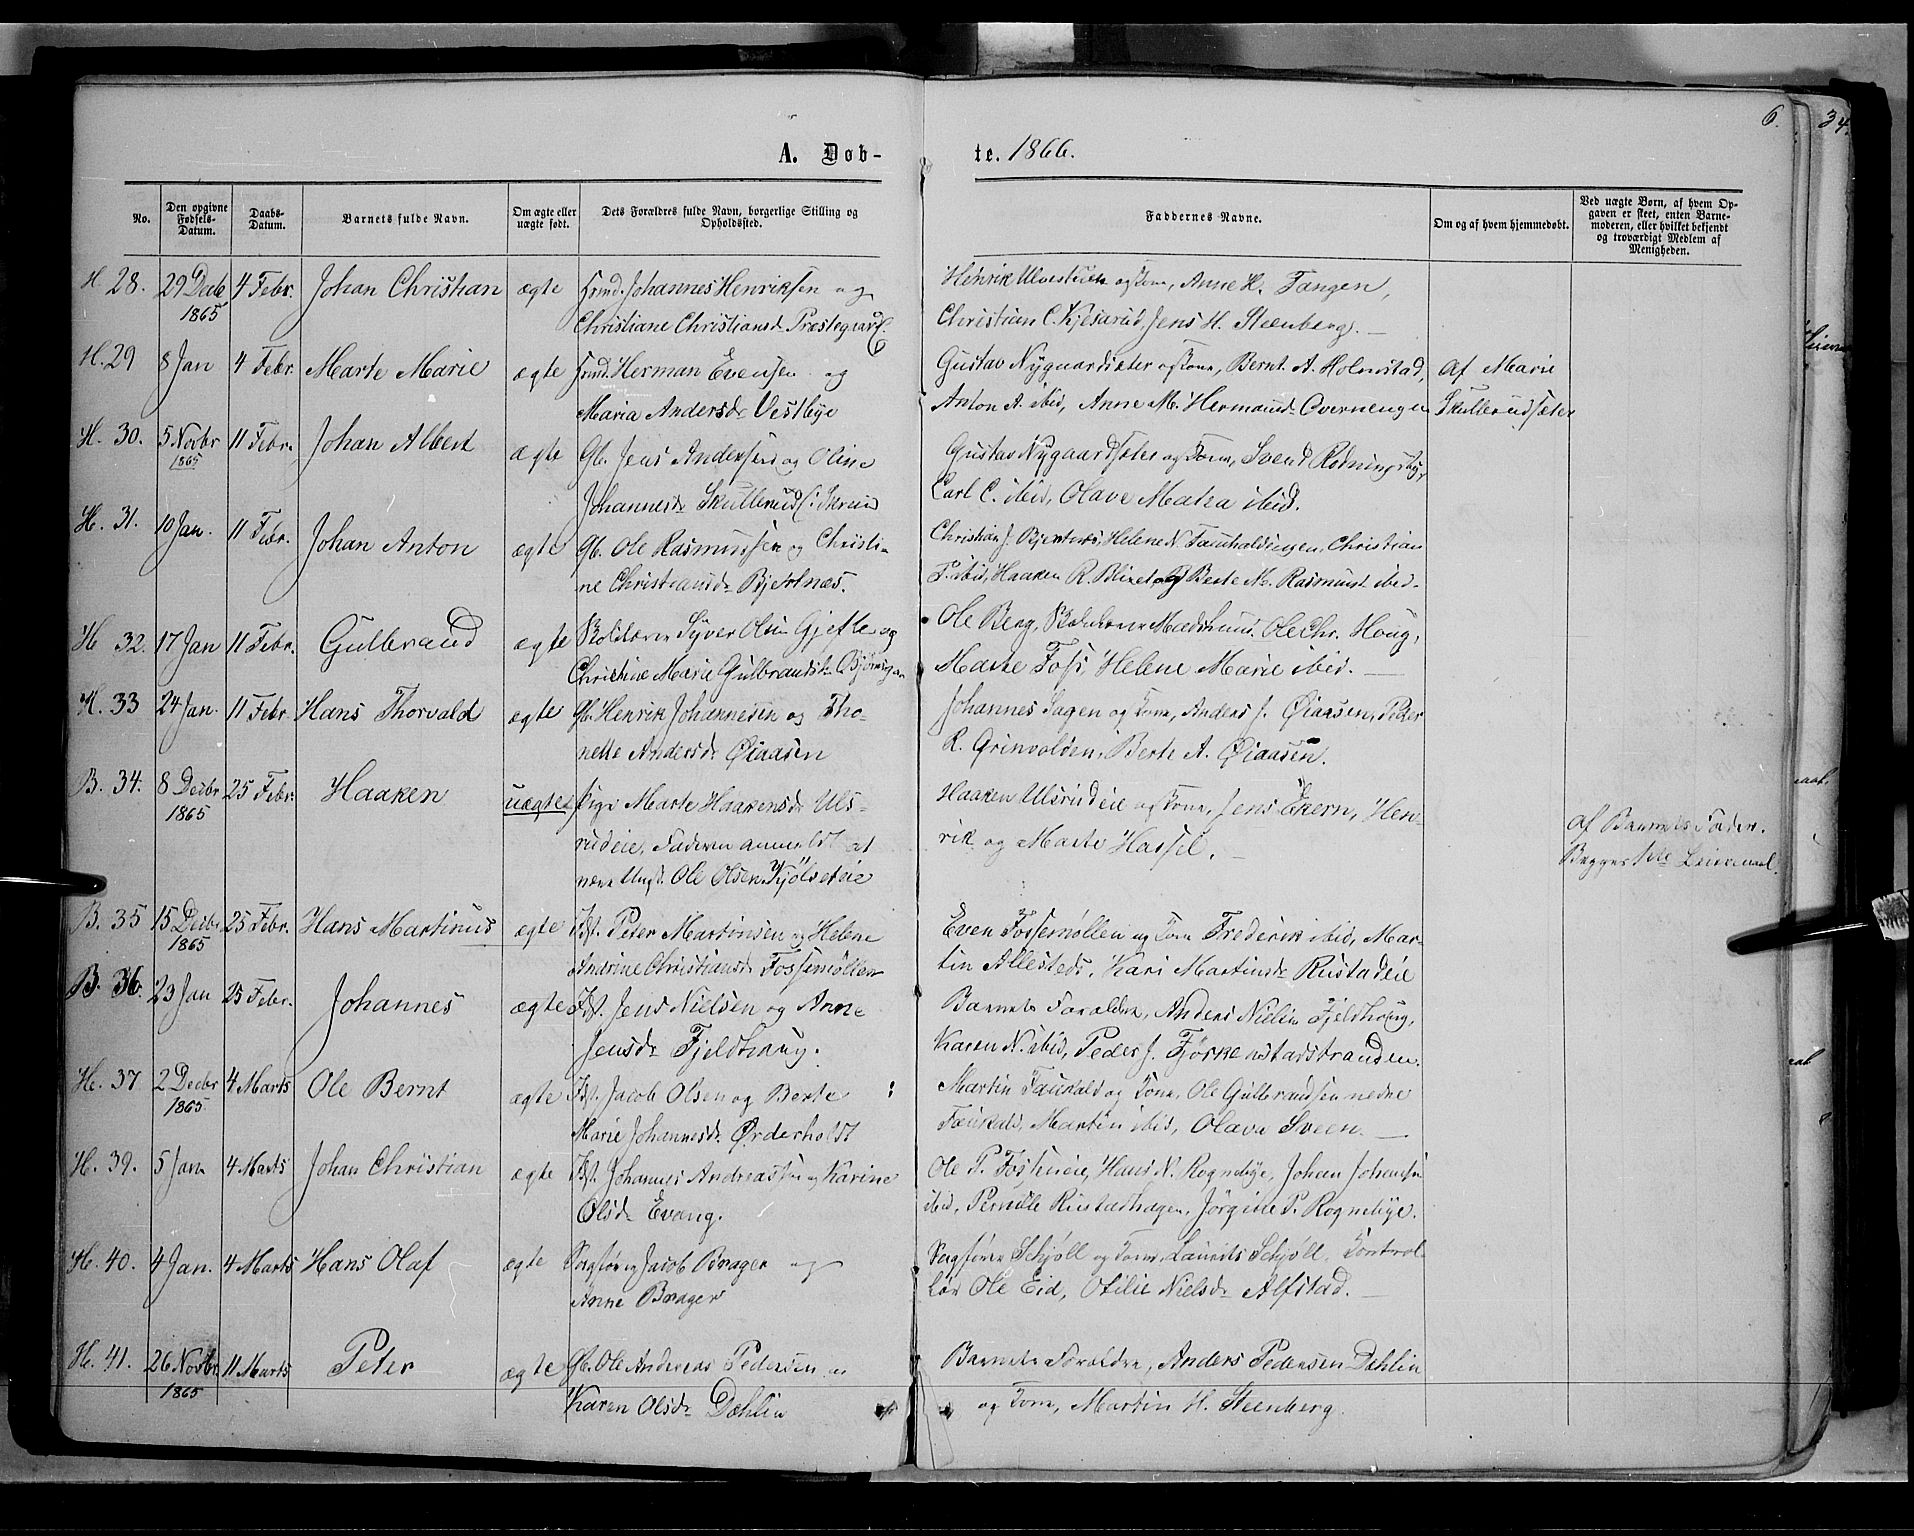 6.
34.
A. Døb-
te. 1866.
No.
Den opgivne Fødsels-Datum.
Daabs-Datum.
Barnets fulde Navn.
Om ægte eller uægte født.
Dets Forældres fulde Navn, borgerlige Stilling og Opholdssted.
Faddernes Navne.
Om og af hvem hjemmedøbt.
Ved uægte Børn, af hvem Opgaven er skeet, enten Barnemoderen, eller hvilket bekjendt og troværdigt Medlem af Menigheden.
H. 28. 29 Decb 4 Febr. Johan Christian ægte Johannes Henriksen og Henrik og Kone, Anne H. Tangen,
1865 Christiane Christiansd. Præstegaard Christian C. Kjesarud, Jens H. Steenberg.
H. 29 8 Jan 4 Febr. Marte Marie ægte Herman Evensen og Gustav Nygaardsæter og Kone, Bernt A. Holmstad, af Marie
Maria Andersd. Vestbye Anton A. ibid, Anne M. Hermansd. Overnengen Skullerudsæter
H. 30. 5 Novbr 11 Febr. Johan Albert ægte Gb. Jens Andersen og Oline Gustav Nygaardsæter og Kone, Svend Rødningsby,
1865 Johannesd. Skullerud Carl C. ibid, Olave Matea ibid.
H. 31. 10 Jan. 11 Febr. Johan Anton ægte Gb. Ole Rasmussen og Christi- Christian J. Bjertnæs, Helene N. Christian
ne Christiansd. Bjertnæs. P. ibid, Haaken R. Blixet og Berte M. Rasmusd. ibid.
H 32. 17 Jan 11 Febr. Gulbrand ægte Syver Olsen Gjefle og Ole Berg, Ole Chr. Houg,
Christine Marie Gulbrandsd. Marte Foss, Helene Marie ibid.
H. 33 24 Jan. 11 Febr. Hans Thorvald ægte Gb. Henrik Johannesen og Tho- Johannes Hagen og Kone, Anders J. Øiaasen, Peter
nette Andersd. Øiaasen R. Grinvolden, Berte A. Øiaasen.
B. 34. 8 Decbr 25 Febr. Haaken uægte Pige Marte Haakensd. Uls- Haaken Ulsrudeie og Kone, Jens Ekern, Hen-
1865 rudeie, Faderen anmeldt at rik og Marte Hassel. af Barnets Fader.
være Ungk. Ole Olsen Kjølseteie Begges 1ste Leiermaal.
B. 35 15 Decbr 25 Febr. Hans Martinus ægte Ist. Peter Martinsen og Helene Even Fossemøllen og Kone Frederik ibid, Mar-
1865 Andrine Christiansd. Fossemøllen tin Allestad, Kari Martinsd. Rustadeie
B. 36. 23 Jan 25 Febr. Johannes ægte Ist. Jens Nielsen og Anne Barnets Forældre, Anders Nielsen Fjeldhoug,
Jensd. Fjeldhaug. Karen N. ibid, Peder J.
H. 37 2 Decbr 4 Marts Ole Bernt ægte Ist. Jacob Olsen og Berte Martin Faukald og Kone, Ole Gulbrandsen nedre
1865 Marie Johannesd. Ørderholst Faukald, Martin ibid, Olava Sveen.
H. 39. 5 Jan 4 Marts Johan Christian ægte Ist. Johannes Andreassen og Karine Ole P. Fosseneie, Hans N. Rognebye, Johan Johansen
Olsd. Evang. ibid, Pernille Rustadhagen, Jørgine P. Rognebye.
H. 40. 4 Jan. 4 Marts Hans Olaf ægte Sagfører Jacob Brager og Sagfører Schjøll og Kone, Laurits Schjøll, Kontrol-
Anne Brager lør Ole Eid, Otilie Nielsd. Alfstad.
H. 41. 26 Novbr 11 Marts Peter ægte Gb. Ole Andreas Pedersen og Barnets Forældre, Anders Pedersen Dæhlin
1865 Karen Olsd. Dæhlin og Kone, Martin H. Steenberg.